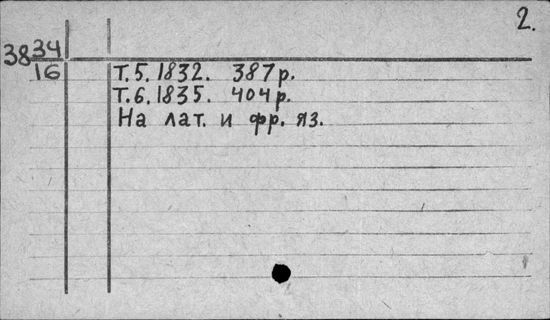 2.
3834
16
Т.5. 1832. 387 р.
Т.6. 1835. 404 р.
На лат. и фр. яз.